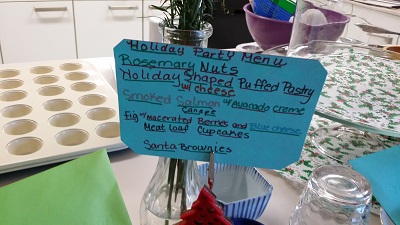 Holiday Party Menu
Rosemary Nuts
Holiday Shaped Puffed Pastry
w/ cheese
Smoked Salmon w/ Avacado creme
Canape
Fig w/ Macerated Berries and Blue cheese
Meat loaf Cupcakes
Santa Brownies